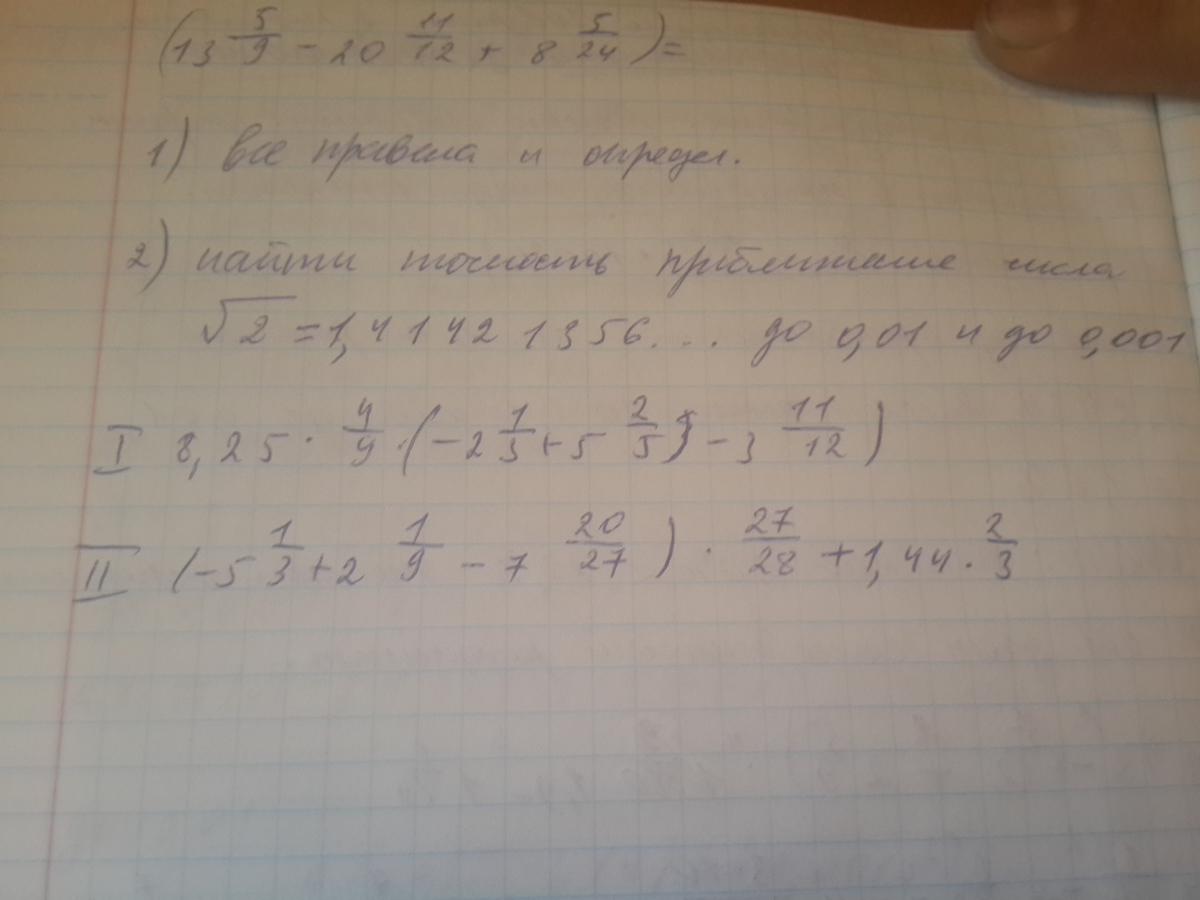 (13 5/9 - 20 11/12 + 8 5/24) =
1) все правила и определ.
2) найти точность приближение числа
√2 = 1,414421356... до 0,01 и до 0,001
I 8,25 · 4/9 · (-2 1/3 + 5 2/5) - 3 11/12)
II (-5 1/3 + 2 1/9 - 7 20/27) · 27/28 + 1,44 · 2/3